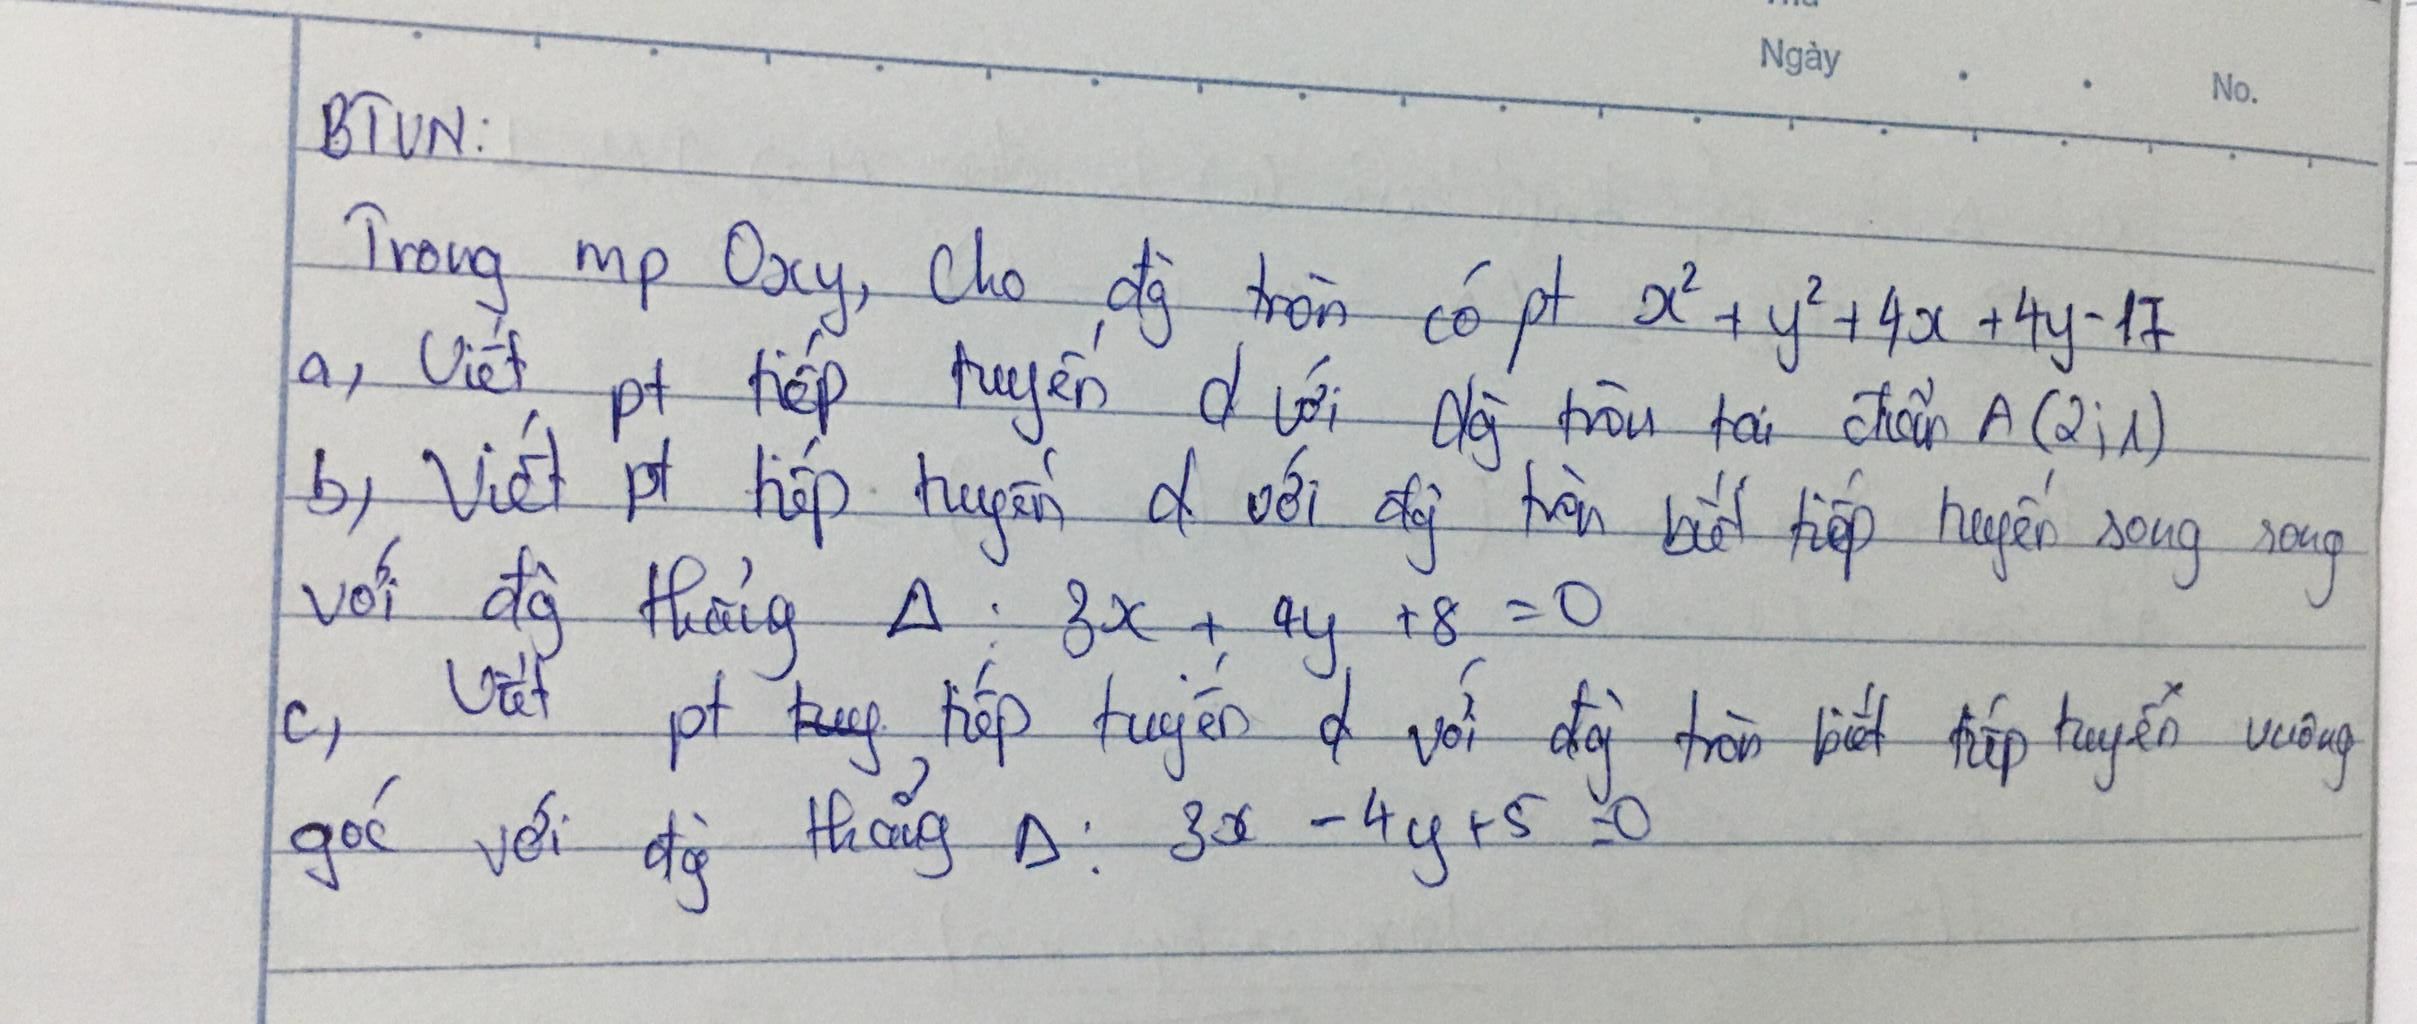 Ngày No.
BTVN:
Trong mp Oxy, Cho đg̀ tròn có pt x² + y² + 4x + 4y - 17
a, Viết pt tiếp tuyến d với đg̀ tròn tại điểm A (2; 1)
b, Viết pt tiếp tuyến d với đg̀ tròn biết tiếp tuyến song song
với đg̀ thẳng Δ : 3x + 4y + 8 = 0
c, Viết pt tiếp tuyến d với đg̀ tròn biết tiếp tuyến vuông
góc với đg̀ thẳng Δ : 3x - 4y + 5 = 0